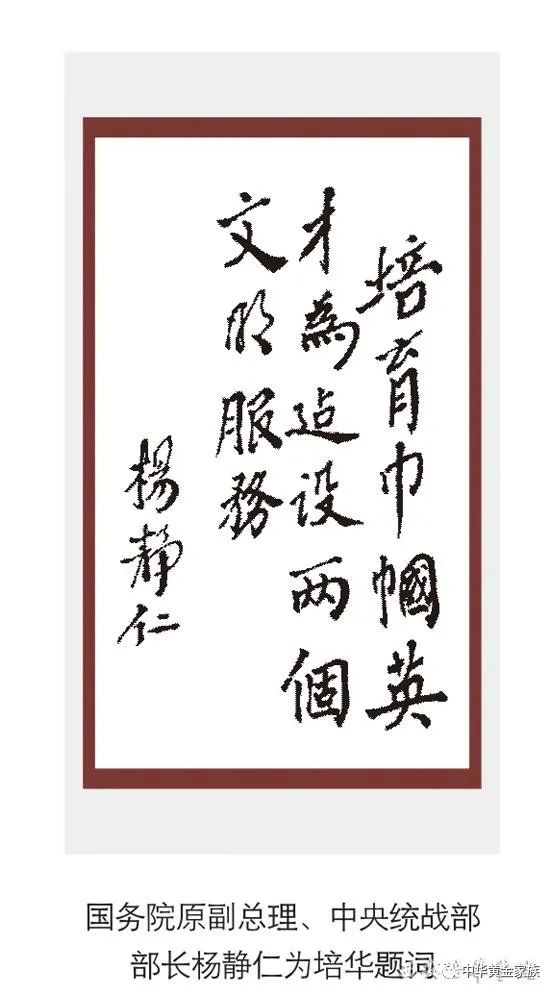 培育巾帼英
才為建设两個
文明服務
楊静仁
国务院原副总理、中央统战部
部长杨静仁为培华题词
中华黄金家族